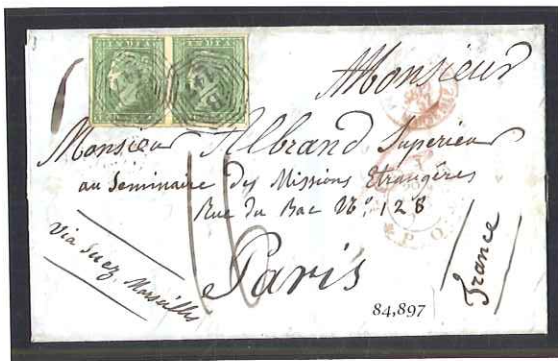 INDIA INDIA
Monsieur
Monsieur Albrand Superieur
au Seminaire des Missions Etrangères
Rue du Bac N.º 128
Paris
via Suez, Marseilles
France
16
84,897